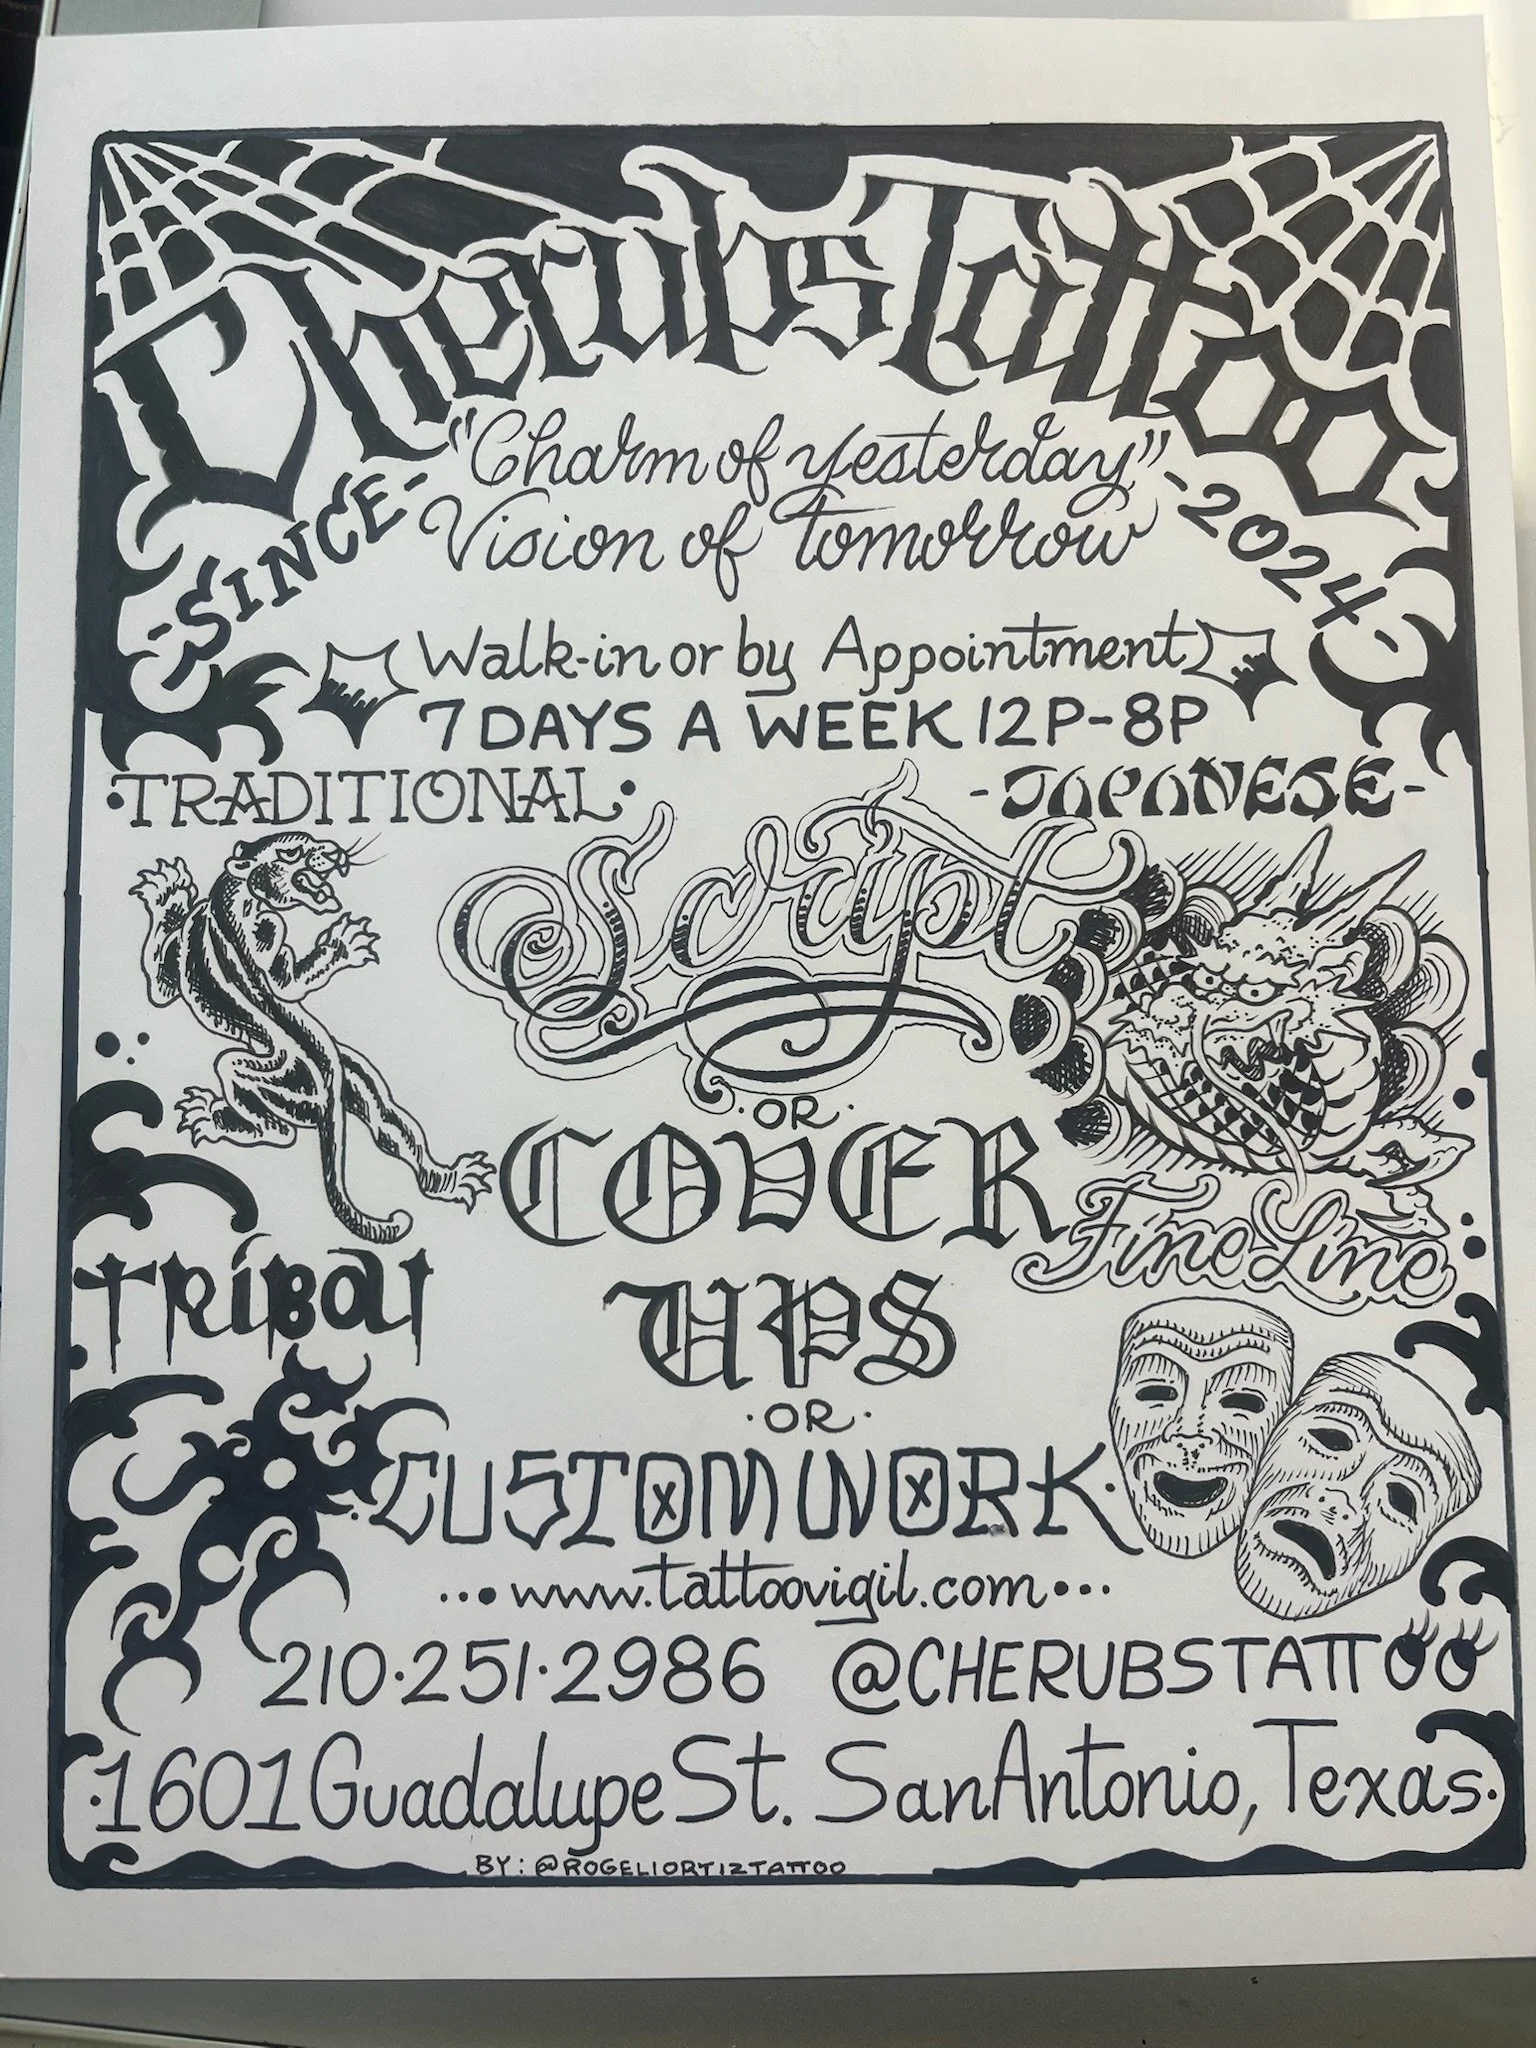 Cherubs Tattoo
-SINCE- "Charm of yesterday" -2024-
Vision of tomorrow
Walk-in or by Appointment
7 DAYS A WEEK 12P-8P
•TRADITIONAL•
-JAPANESE-
Script
·OR·
COVER
UPS
Fine Line
TRiBal
·OR·
·CUSTOM WORK·
...•www.tattoovigil.com•...
210·251·2986 @CHERUBSTATTOO
·1601 Guadalupe St. San Antonio, Texas·
BY: @ROGELIORTIZTATTOO